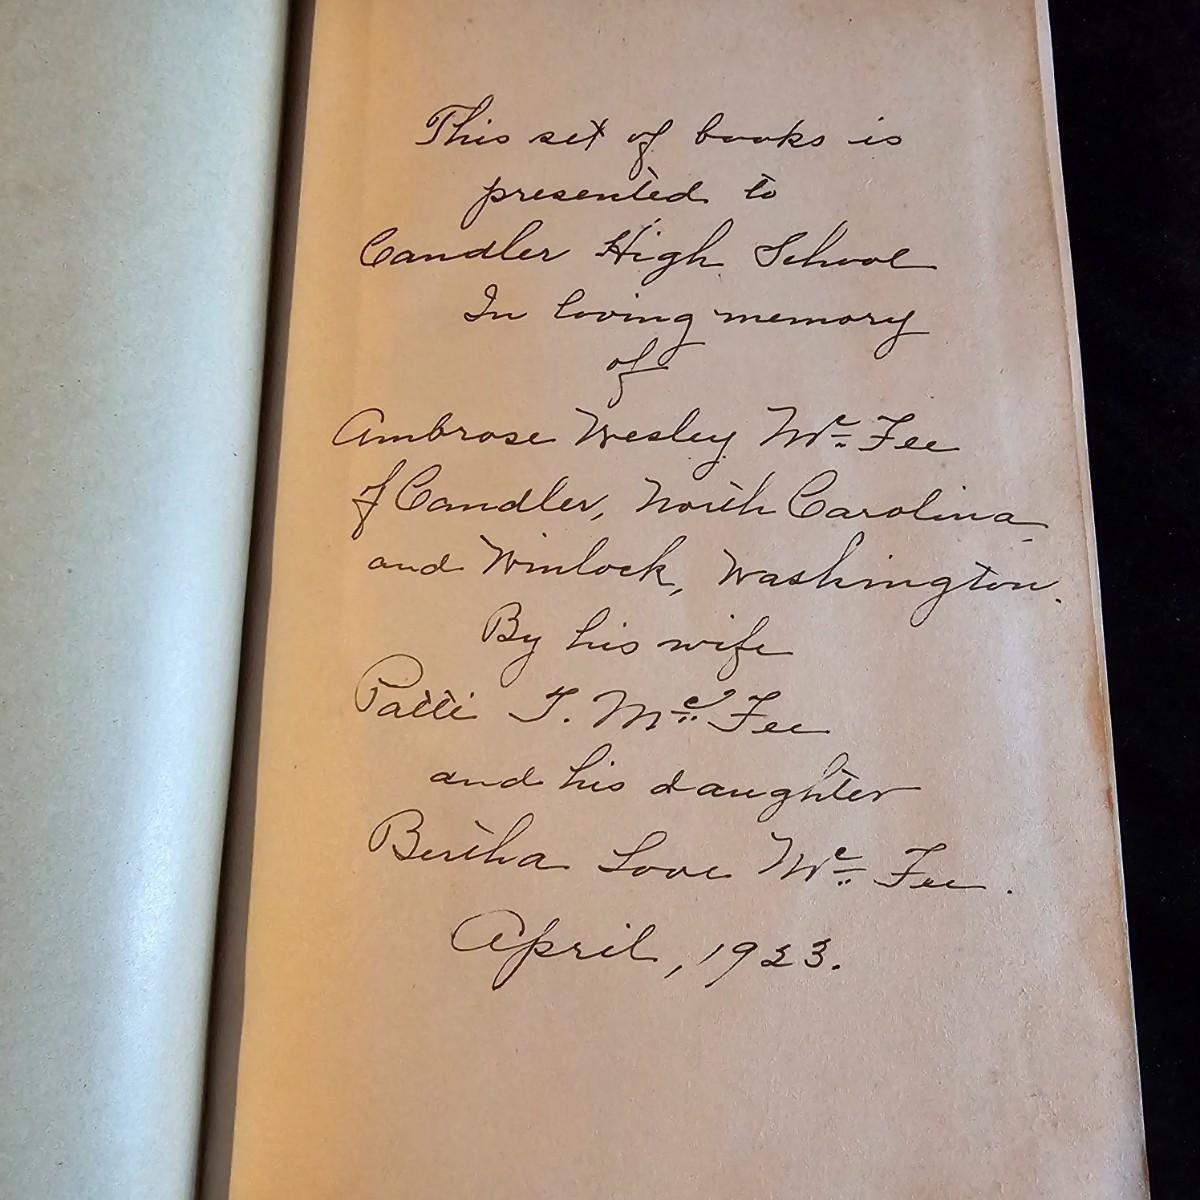 This set of books is
presented to
Candler High School
In loving memory
of
Ambrose Wesley Mc Fee
of Candler, North Carolina
and Winlock, Washington.
By his wife
Patti T. Mc Fee
and his daughter
Bertha Love Mc Fee.
April, 1923.